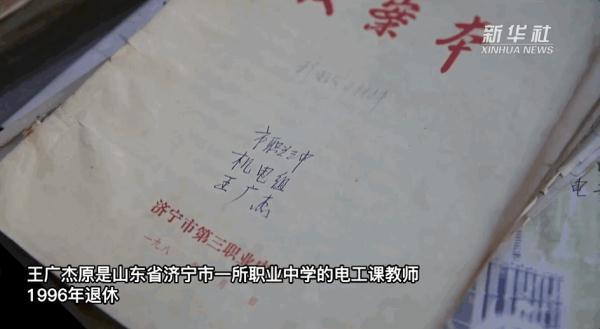 新华社
XINHUA NEWS
教案本
市职三中
机电组
王广杰
济宁市第三职业中
一九八
电
王广杰原是山东省济宁市一所职业中学的电工课教师
1996年退休